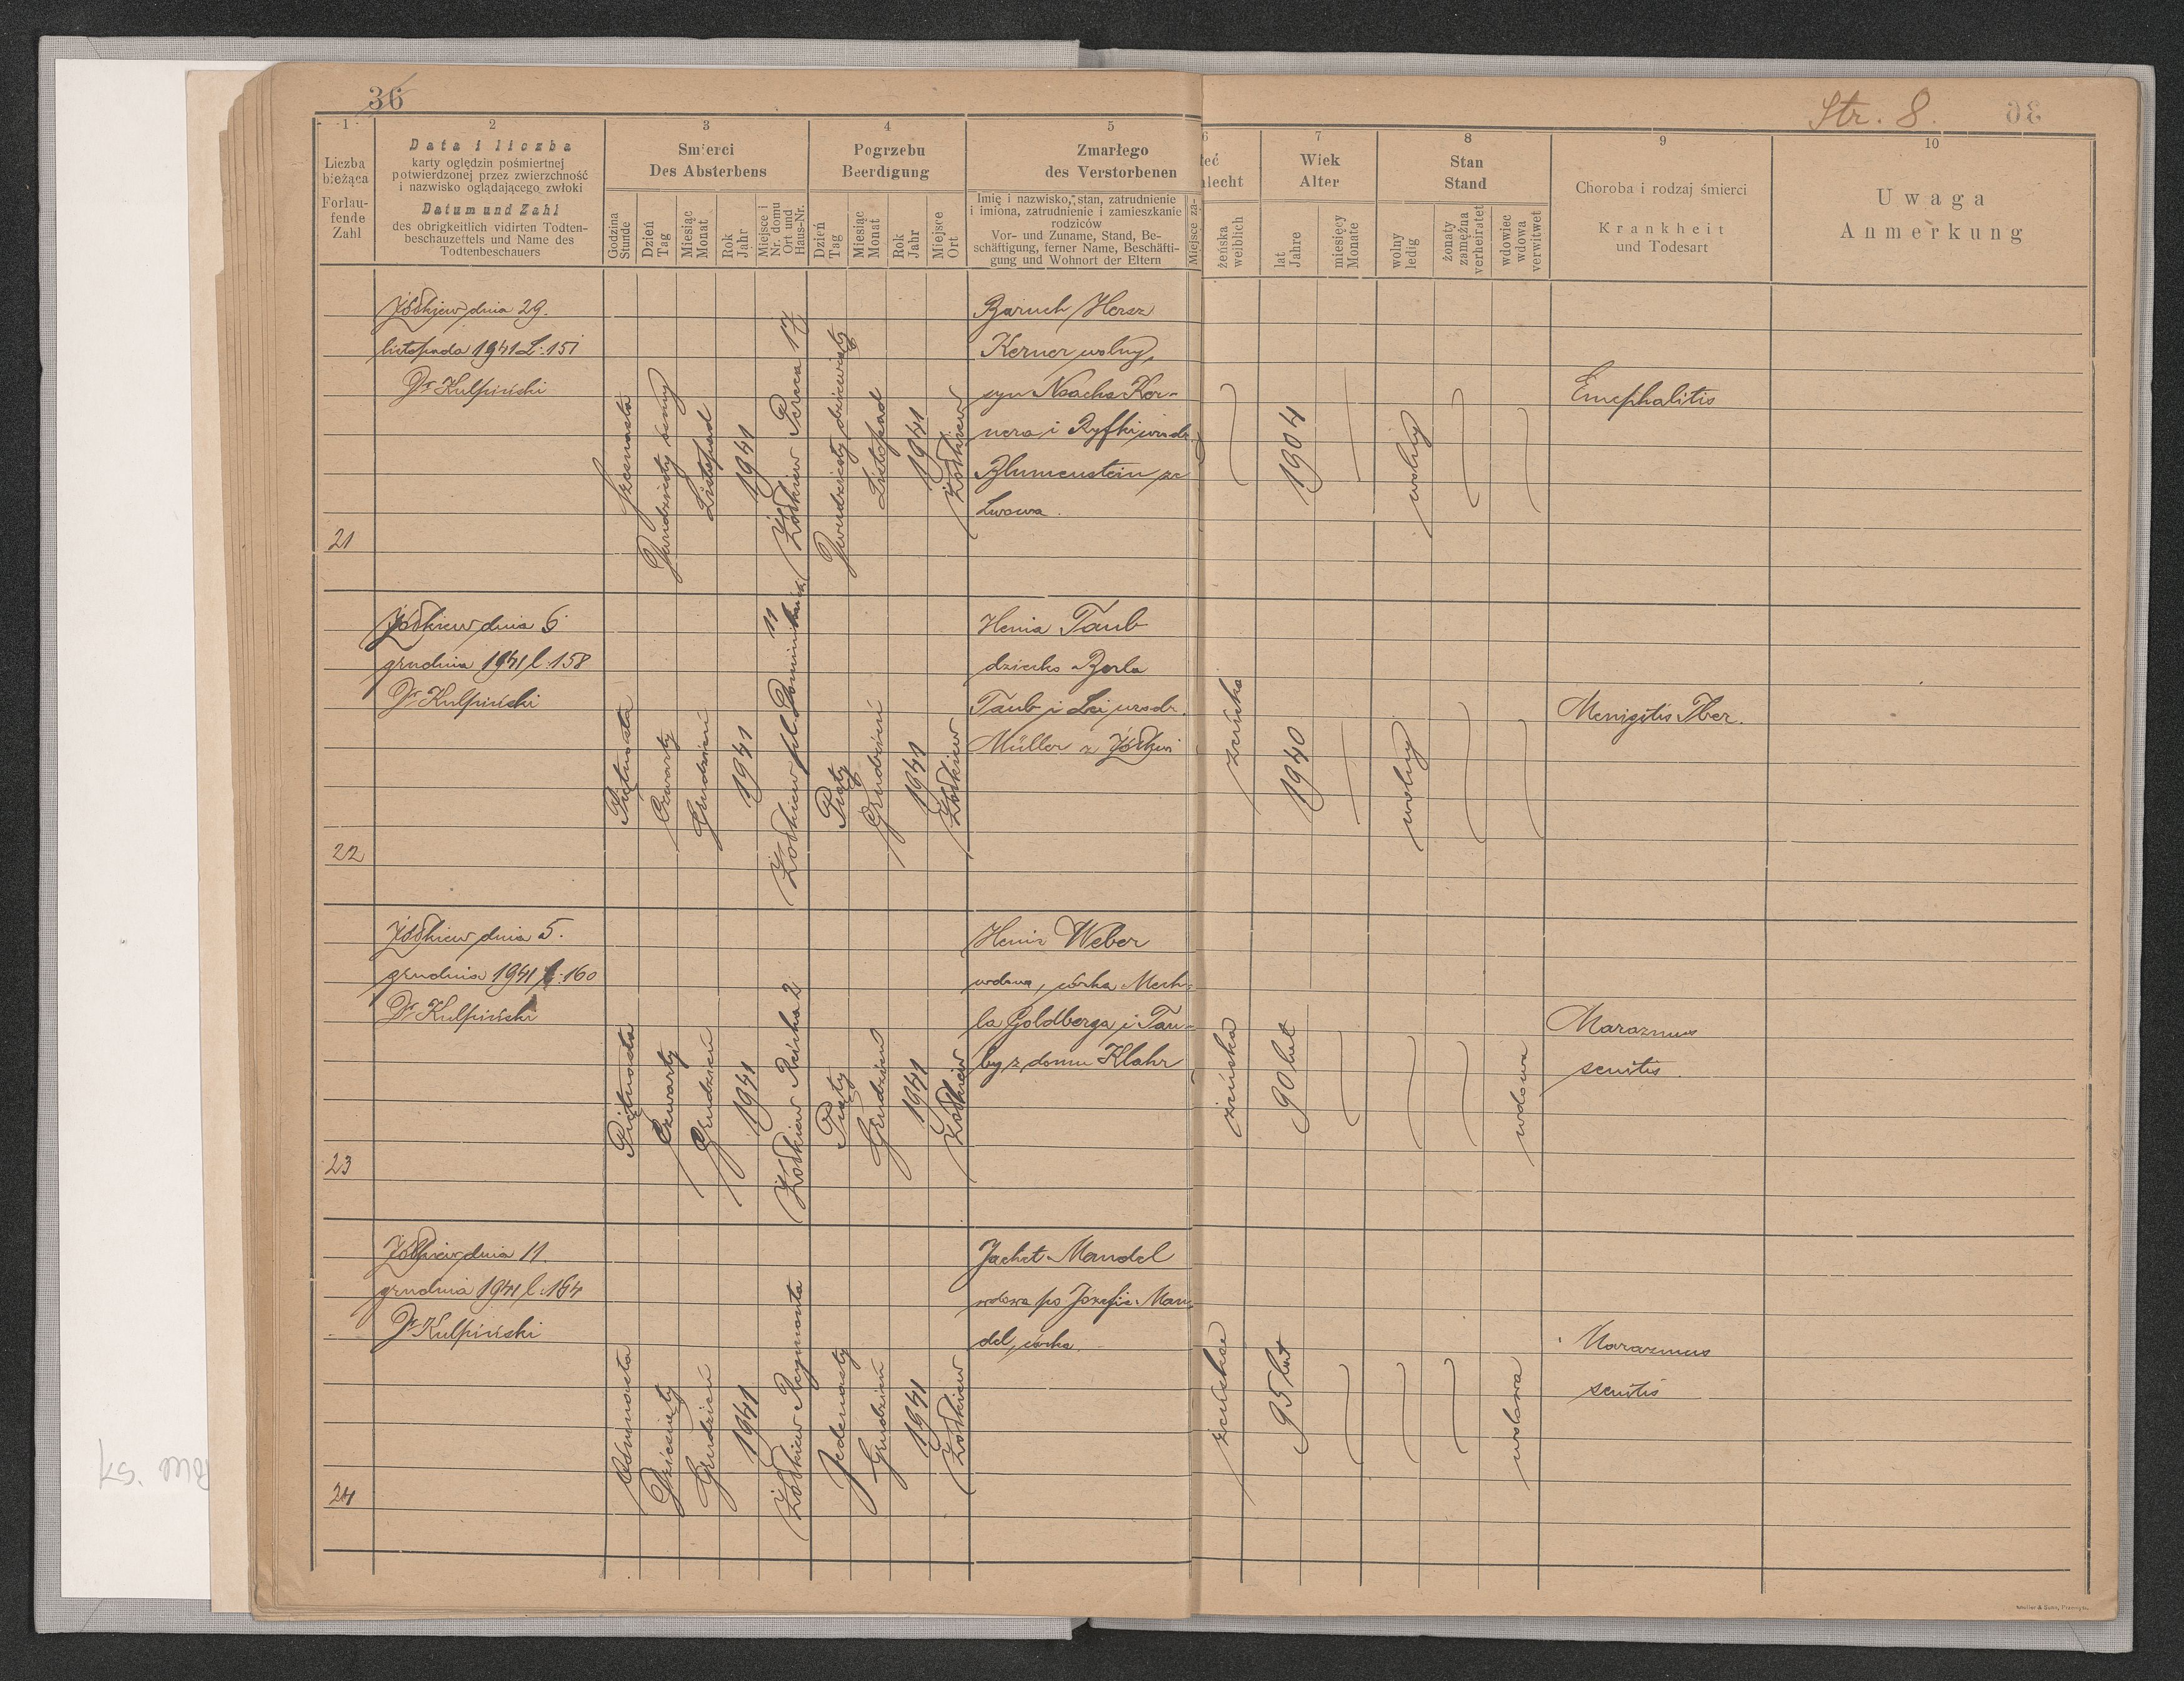 36
Str. 8.
1
2
3
4
5
6
7
8
9
10
Liczba
bieżąca
Forlau-
fende
Zahl
Data i liczba
karty oględzin pośmiertnej
potwierdzonej przez zwierzchność
i nazwisko oglądającego zwłoki
Datum und Zahl
des obrigkeitlich vidirten Todten-
beschauzettels und Name des
Todtenbeschauers
Smierci
Des Absterbens
Godzina
Stunde
Dzień
Tag
Miesiąc
Monat
Rok
Jahr
Miejsce i
Nr. domu
Ort und
Haus-Nr.
Pogrzebu
Beerdigung
Dzień
Tag
Miesiąc
Monat
Rok
Jahr
Miejsce
Ort
Zmarłego
des Verstorbenen
Imię i nazwisko, stan, zatrudnienie
i imiona, zatrudnienie i zamieszkanie
rodziców
Vor- und Zuname, Stand, Be-
schäftigung, ferner Name, Beschäfti-
gung und Wohnort der Eltern
Miejsce za-
łeć
hlecht
żeńska
weiblich
Wiek
Alter
lat
Jahre
miesięcy
Monate
Stan
Stand
wolny
ledig
żonaty
zamężna
verheiratet
wdowiec
wdowa
verwitwet
Choroba i rodzaj śmierci
Krankheit
und Todesart
Uwaga
Anmerkung
21
Żółkiew dnia 29.
listopada 1941 L: 151
Dr Kulpiński
Szesnasta
Dwudziesty ósmy
Listopad
1941
Żółkiew Pereca 17
Dwudziesty dziewiąty
Listopad
1941
Żółkiew
Baruch Hersz
Kerner wolny,
syn Noacha Ker-
nera i Ryfki urodz.
Blumenstein ze
Lwowa.
1904
wolny
Encephalitis
22
Żółkiew dnia 6
grudnia 1941 l: 158
Dr Kulpiński
Piętnasta
Czwarty
Grudzień
1941
Żółkiew pl. Dominikańsk. 11
Piąty
Grudzień
1941
Żółkiew
Henia Taub
dziecko Berla
Taub i Lei urodz.
Müller z Żółkwi
żeńska
1940
wolny
Menigitis Tber.
23
Żółkiew dnia 5.
grudnia 1941 l: 160
Dr Kulpiński
Piętnasta
Czwarty
Grudzień
1941
Żółkiew Reińska 2
Piąty
Grudzień
1941
Żółkiew
Henia Weber
wdowa, córka Mech-
la Goldberga i Tau-
by z domu Klahr
żeńska
90 lat
wdowa
Marazmus
senitis.
24
Żółkiew dnia 11.
grudnia 1941 l: 164
Dr Kulpiński
Ośmnasta
Dziesiąty
Grudzień
1941
Żółkiew Reymonta
Jedenasty
Grudzień
1941
Żółkiew
Jachet Mandel
wdowa po Jozefie Man-
del, córka.
żeńska
95 lat
wdowa
Marazmus
senitis